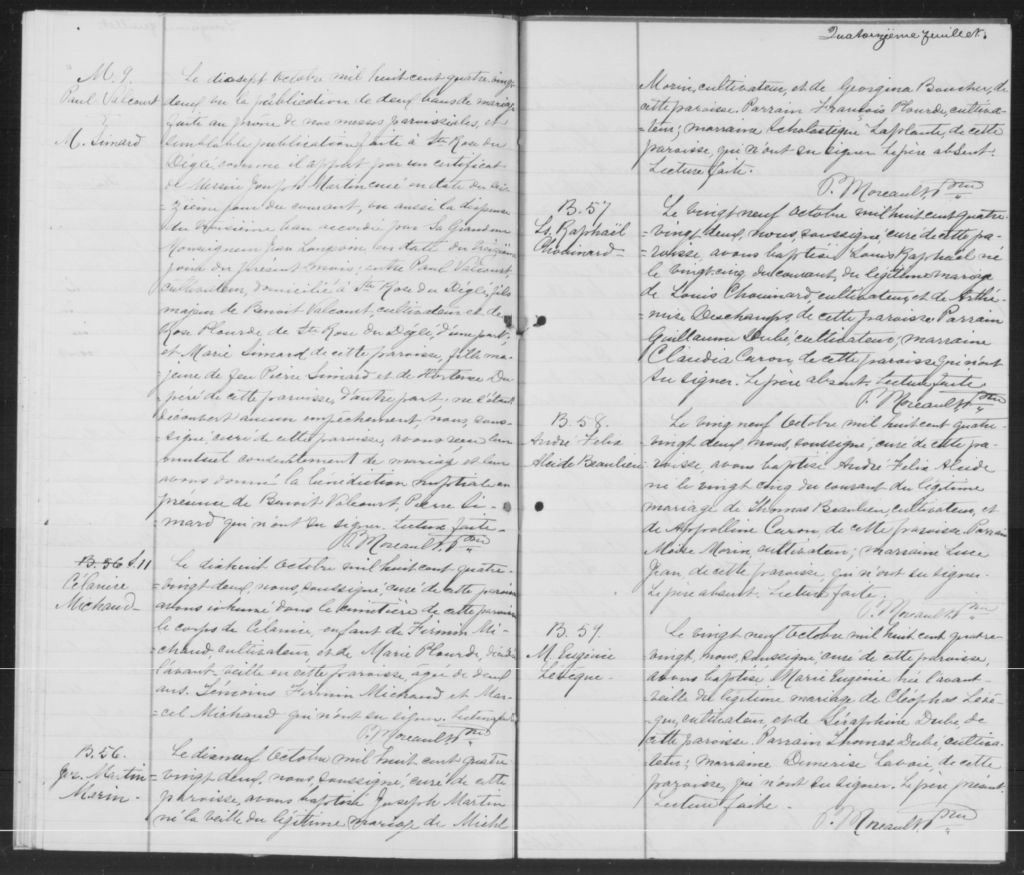 M. 9.
Paul Valcourt
&
M. Simard
Le dixsept Octobre mil huit cent quatre vingt
deux vu la publication de deux bans de mariage
faite au prône de nos messes paroissiales, et
semblable publication faite à Ste Rose du
Dégli, comme il appert par un certificat
de Messire Joseph Martin curé en date du
zième jour du courant, vu aussi la dispense
du troisième ban accordée par Sa Grandeur
Monseigneur Jean Langevin en date du
jour du présent mois; entre Paul Valcourt,
cultivateur, domicilié à Ste Rose du Dégli, fils
majeur de Benoit Valcourt, cultivateur et de
Rose Plourde de Ste Rose du Dégli, d'une part;
et Marie Simard de cette paroisse, fille ma-
=jeure de feu Pierre Simard et de Hortense Du
=péré de cette paroisse, d'autre part: ne s'étant
découvert aucun empêchement, nous, sous-
=signé, curé de cette paroisse, avons reçu leur
mutuel consentement de mariage et leur
avons donné la bénédiction nuptiale en
présence de Benoit Valcourt, Pierre Si-
=mard qui n'ont su signer. Lecture faite.
P. Moreault, Ptre
B. 56 S. 11
Célanire
Michaud
Le dixhuit Octobre mil huit cent quatre-
=vingt deux, nous, soussigné, curé de cette paroisse
avons inhumé dans le cimetière de cette paroisse
le corps de Célanire, enfant de Firmin Mi-
=chaud cultivateur et de Marie Plourde, décédée
l'avant-veille en cette paroisse, agée de deux
ans. Témoins Firmin Michaud et Mar-
=cel Michaud qui n'ont su signer. Lecture faite
P. Moreault, Ptre
B. 56.
Jos. Martin
Morin.
Le dixneuf Octobre mil huit cent quatre
=vingt deux, nous, soussigné, curé de cette
paroisse, avons baptisé Joseph Martin
né la veille du légitime mariage de Michel
Quatorzième feuillet.
Morin, cultivateur, et de Georgina Boucher, de
cette paroisse. Parrain François Plourde, cultiva-
=teur; marraine Scholastique Laplante, de cette
paroisse, qui n'ont su signer. Le père absent.
Lecture faite.
P. Moreault, Ptre
B. 57
Ls. Raphaël
Chouinard
Le vingt neuf Octobre mil huit cent quatre-
vingt deux, nous, soussigné curé de cette pa-
=roisse, avons baptisé Louis Raphaël né
le vingt-cinq du courant, du légitime mariage
de Louis Chouinard, cultivateur, et de Arthé-
=mise Deschamps, de cette paroisse. Parrain
Guillaume Dubé, cultivateur; marraine
Claudia Caron, de cette paroisse qui n'ont
su signer. Le père absent. Lecture faite
P. Moreault, Ptre
B. 58.
André Felix
Alcide Beaulieu
Le vingt neuf Octobre mil huit cent quatre-
vingt deux, nous, soussigné, curé de cette pa-
=roisse avons baptisé André Felix Alcide
né le vingt cinq du courant du légitime
mariage de Thomas Beaulieu, cultivateur, et
de Appolline Caron, de cette paroisse. Parrain
Moïse Morin, cultivateur; marraine Luce
Jean, de cette paroisse, qui n'ont su signer.
Le père absent. Lecture faite.
P. Moreault, Ptre
B. 59.
M. Eugénie
Lévèque
Le vingt neuf Octobre mil huit cent quatre
vingt, nous, soussigné, curé de cette paroisse,
avons baptisé Marie Eugénie née l'avant-
veille du légitime mariage de Cléophas Lévè-
que, cultivateur, et de Séraphine Dubé, de
cette paroisse. Parrain Thomas Dubé, cultiva-
=teur; marraine Demerise Lavoie, de cette
paroisse, qui n'ont su signer. Le père présent.
Lecture faite.
P. Moreault, Ptre